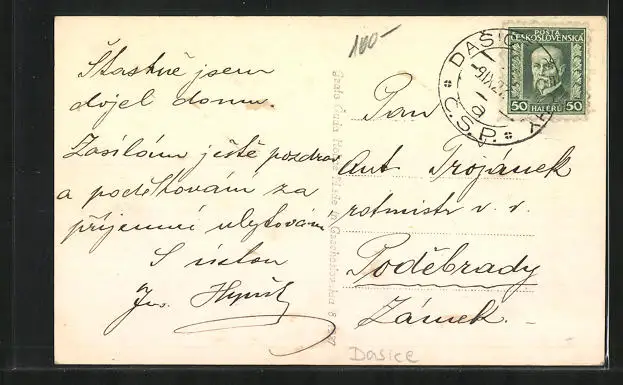 100-
Šťastně jsem
dojel domu.
Zasílám ještě pozdrav
a poděkování za
příjemné ubytování
S úctou
Jos.
DAŠICE
Č.S.P.
a
POŠTA
ČESKOSLOVENSKÁ
50 HALÉŘŮ 50
Pan
Ant Trojánek
rotmistr v. v.
Poděbrady
Zámek.
Dasice